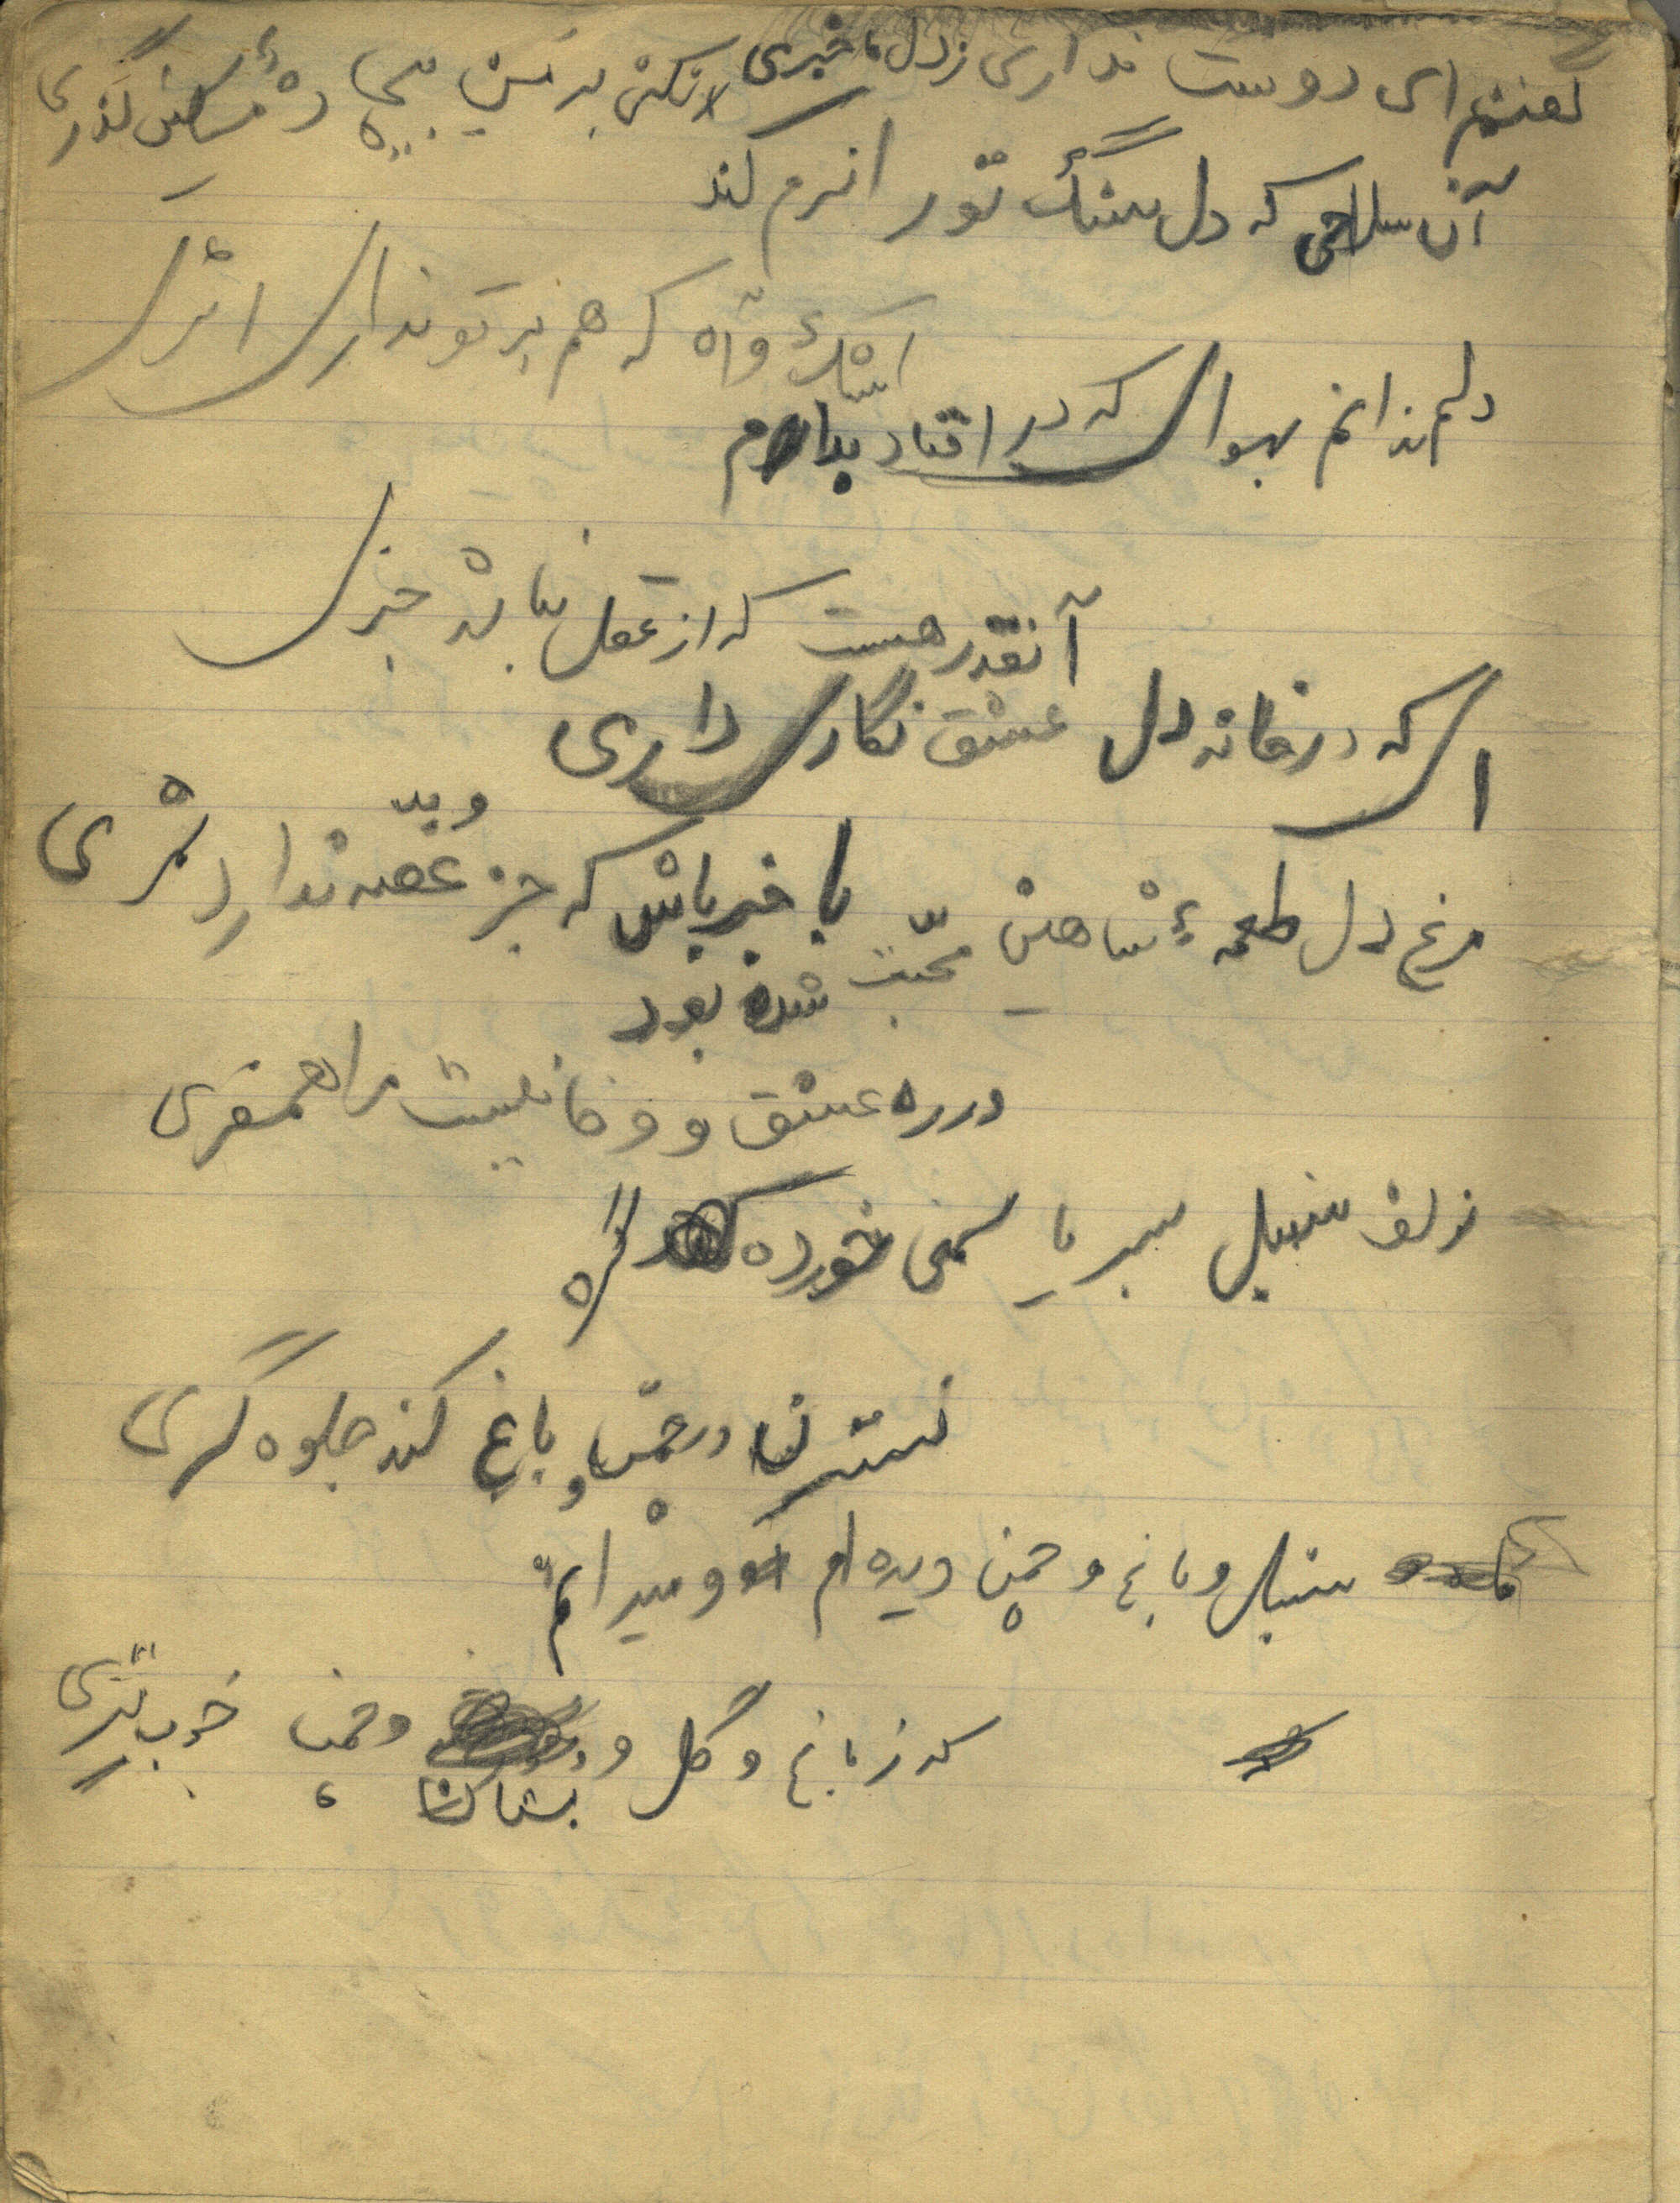 گفتم ای دوست نداری ز دل ما خبری
نکنی بر من بیچاره مسکین گذری
آن سلاحی که دل سنگ تو را نرم کند
اشک و آه که هم بر تو ندارد اثری
دلم ندانم بهوای که در افتاد
آنقدر هست که از عقل نیابد خبری
ای که در خانه دل عشق نگاری داری
با خبر باش که جز غصه ندارد ثمری
مرغ دل طعمهٔ شاهین محبّت شده بود
در ره عشق و وفا نیست مرا همسفری
زلف سنبل بسر یاسمنی خورده گره
نسترن در چمن و باغ کند جلوه گری
سنبل و باغ و چمن دیده ام و میدانم
که ز باغ و گل و بستان و چمن خوب تری